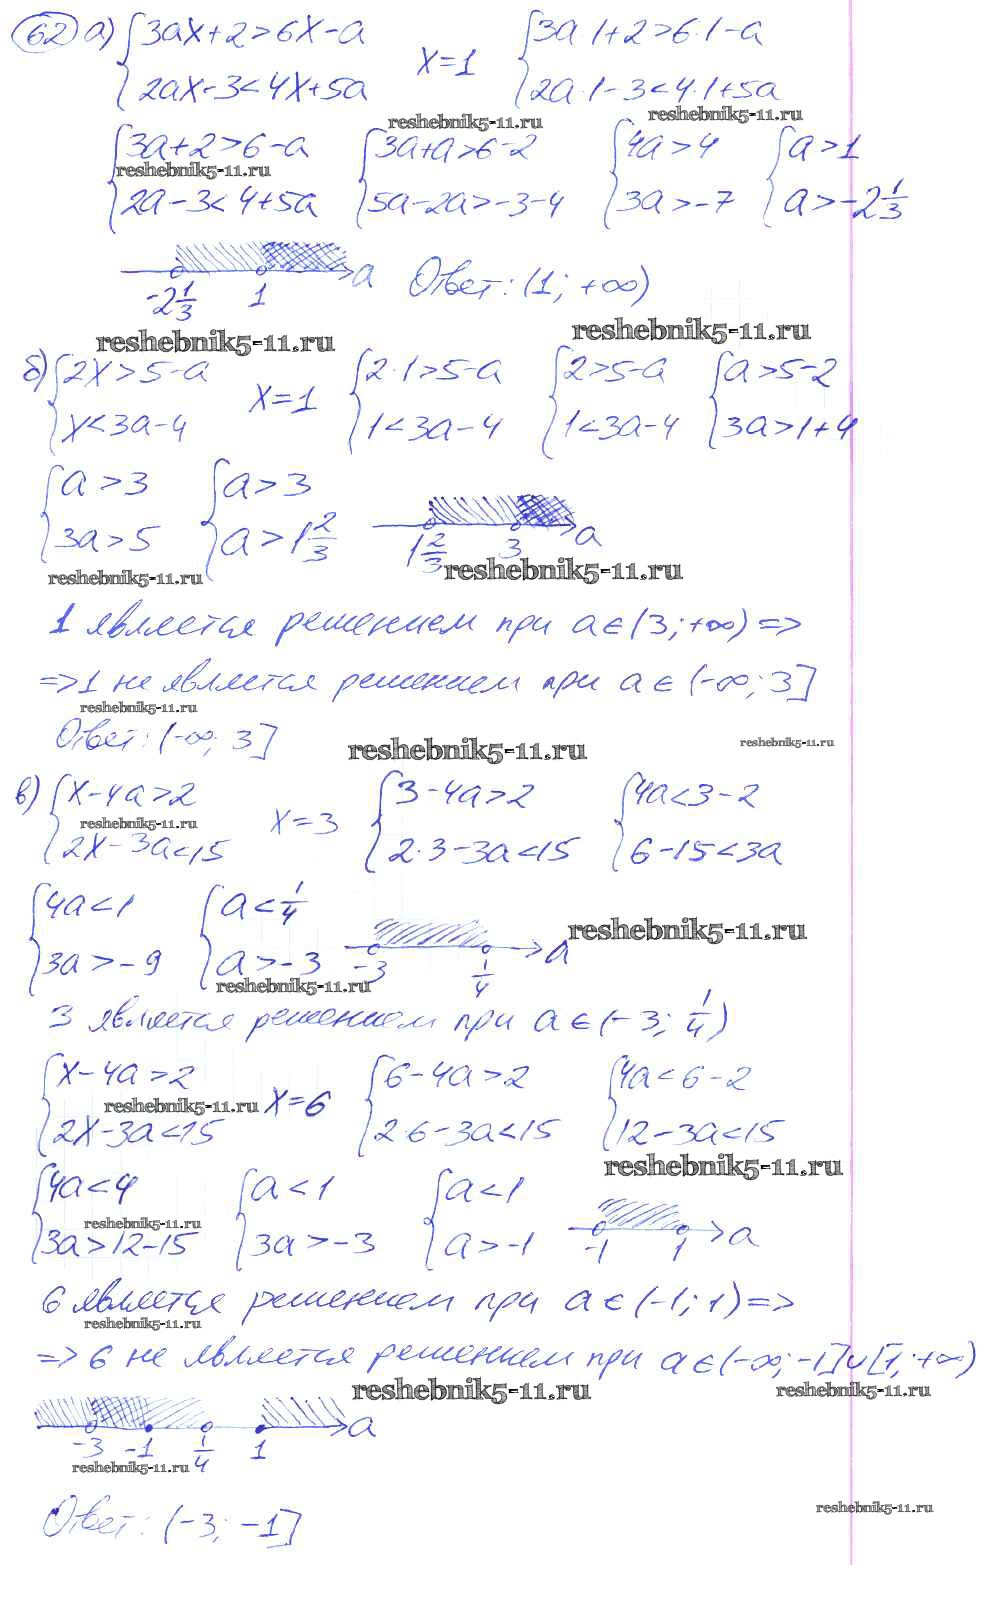 62 а) {3ax+2>6x-a 2ax-3<4x+5a x=1 {3a·1+2>6·1-a 2a·1-3<4·1+5a
reshebnik5-11.ru reshebnik5-11.ru
{3a+2>6-a 2a-3<4+5a {3a+a>6-2 5a-2a>-3-4 {4a>4 3a>-7 {a>1 a>-2 1/3
reshebnik5-11.ru
-2 1/3 1 a Ответ: (1; +∞)
reshebnik5-11.ru reshebnik5-11.ru
б) {2x>5-a x<3a-4 x=1 {2·1>5-a 1<3a-4 {2>5-a 1<3a-4 {a>5-2 3a>1+4
{a>3 3a>5 {a>3 a>1 2/3 1 2/3 3 a
reshebnik5-11.ru reshebnik5-11.ru
1 является решением при a∈(3; +∞) =>
=> 1 не является решением при a∈(-∞; 3]
reshebnik5-11.ru
Ответ: (-∞; 3]
reshebnik5-11.ru reshebnik5-11.ru
в) {x-4a>2 2x-3a<15 x=3 {3-4a>2 2·3-3a<15 {4a<3-2 6-15<3a
reshebnik5-11.ru
{4a<1 3a>-9 {a<1/4 a>-3 -3 1/4 a
reshebnik5-11.ru reshebnik5-11.ru
3 является решением при a∈(-3; 1/4)
{x-4a>2 2x-3a<15 x=6 {6-4a>2 2·6-3a<15 {4a<6-2 12-3a<15
reshebnik5-11.ru reshebnik5-11.ru
{4a<4 3a>12-15 {a<1 3a>-3 {a<1 a>-1 -1 1 a
reshebnik5-11.ru
6 является решением при a∈(-1; 1) =>
reshebnik5-11.ru
=> 6 не является решением при a∈(-∞; -1]∪[1; +∞)
reshebnik5-11.ru reshebnik5-11.ru
-3 -1 1/4 1 a
reshebnik5-11.ru
Ответ: (-3; -1]
reshebnik5-11.ru